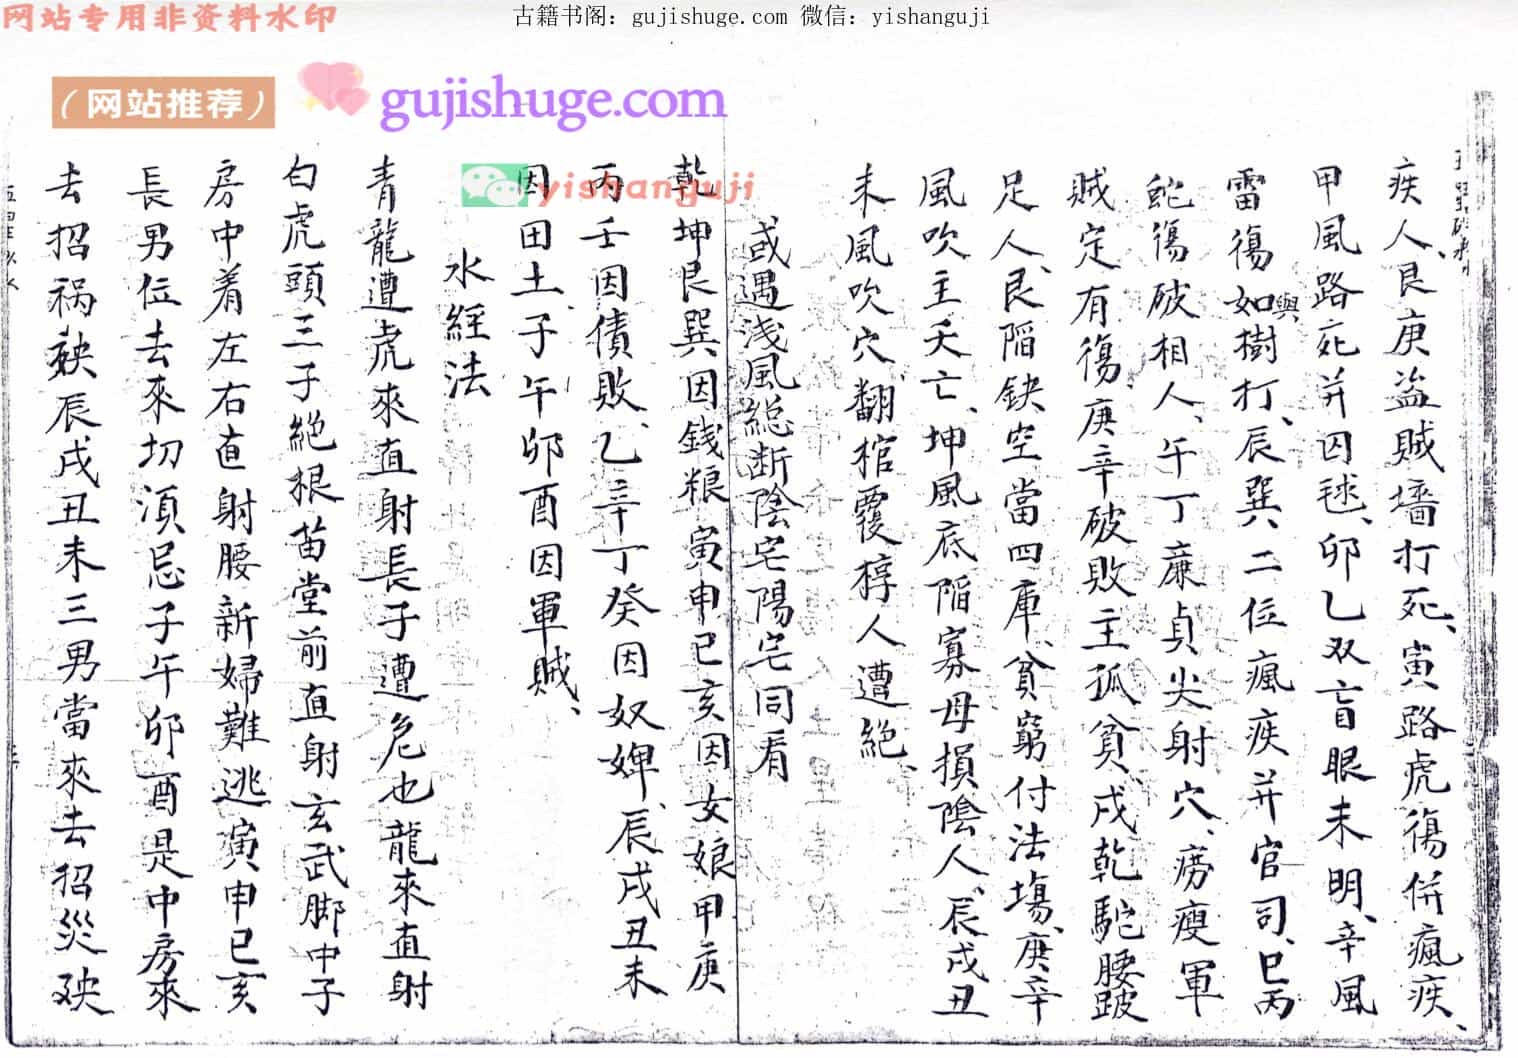 网站专用非资料水印
古籍书阁：gujishuge.com 微信：yishanguji
（网站推荐）
gujishuge.com
yishanguji
疾人、艮庚盗贼墙打死、寅路虎傷併瘋疾、
甲風路死并囚毬、卯乙双盲眼未明、辛風
雷傷如與樹打、辰巽二位瘋疾并官司、巳丙
蛇傷破相人、午丁廉貞尖射穴、癆瘦軍
賊定有傷、庚辛破敗主孤貧、戌乾駝腰跛
足人、艮陷鈌空當四庫、貧窮付法塲、庚辛
風吹主夭亡、坤風底陷寡母損陰人、辰戌丑
未風吹穴翻棺覆椁人遭絕、
或遇浅風総断陰宅陽宅同看
乾坤艮巽因錢粮寅申巳亥因女娘甲庚
丙壬因債敗、乙辛丁癸因奴婢、辰戌丑未
因田土、子午卯酉因軍賊、
水経法
青龍遭虎來直射長子遭危也龍來直射
白虎頭三子絕根苗堂前直射玄武脚中子
房中着左右直射腰新婦難逃寅申巳亥
長男位去來切湏忌子午卯酉是中房來
去招禍殃辰戌丑未三男當來去招災殃